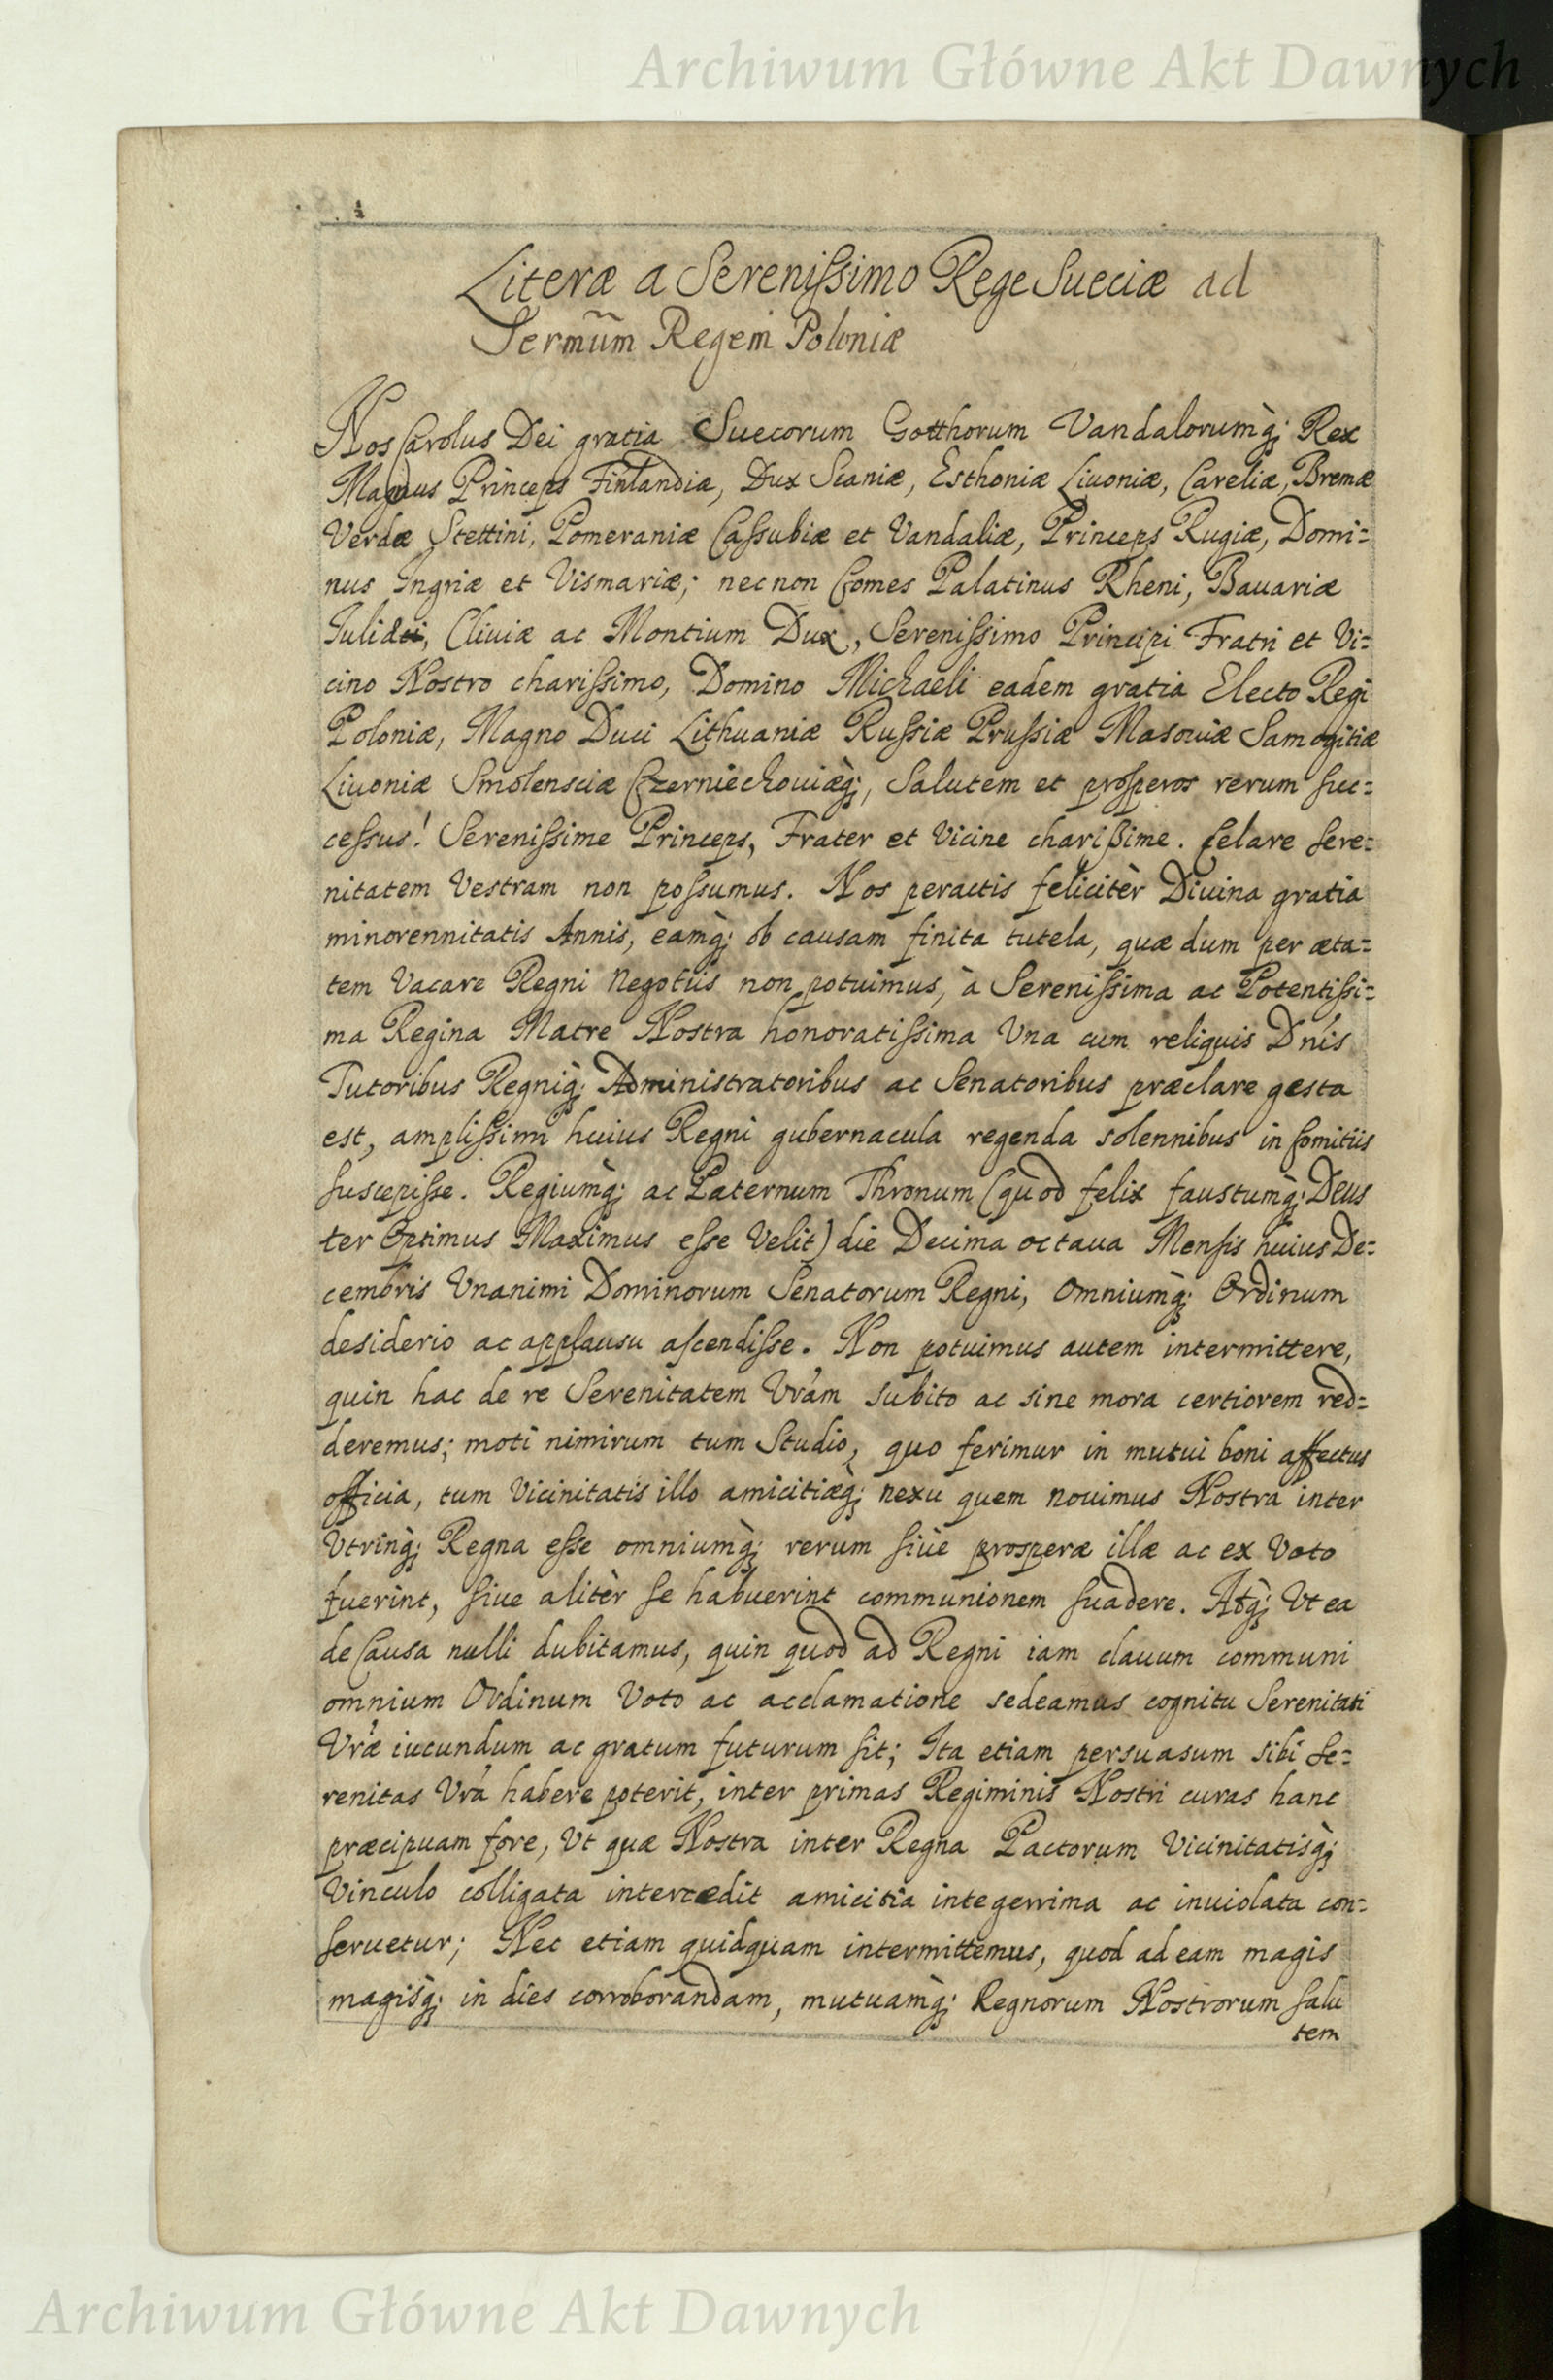 Archiwum Główne Akt Dawnych
Literæ a Serenissimo Rege Sueciæ ad
Sermũm Regem Poloniæ
Nos Carolus Dei gratia Suecorum Gotthorum Vandalorumq̀; Rex
Magnus Princeps Finlandiæ, Dux Scaniæ, Esthoniæ Liuoniæ, Careliæ, Bremæ
Verdæ Stettini, Pomeraniæ Cassubiæ et Vandaliæ, Princeps Rugiæ, Domi=
nus Ingriæ et Vismariæ; necnon Comes Palatinus Rheni, Bauariæ
Cliuiæ ac Montium Dux, Serenissimo Principi Fratri et Vi=
cino Nostro charissimo, Domino Michaeli eadem gratia Electo Regi
Poloniæ, Magno Duci Lithuaniæ Russiæ Prussiæ Masouiæ Samogitiæ
Liuoniæ Smolensciæ Czerniechouiæq̀;, Salutem et prosperos rerum suc=
cessus! Serenissime Princeps, Frater et Vicine charißime. Celare sere=
nitatem Vestram non possumus. Nos peractis felicitèr Diuina gratia
minorennitatis Annis, eamq̀; ob causam finita tutela, quæ dum per æta=
tem Vacare Regni Negotiis non potuimus, à Serenissima ac Potentissi=
ma Regina Matre Nostra honoratissima Una cum reliquis Dn'is
Tutoribus Regniq̀; Administratoribus ac Senatoribus præclare gesta
est, amplissimi huius Regni gubernacula regenda solennibus in Comitiis
suscepisse. Regiumq̀; ac Paternum Thronum (quod felix faustumq̀; Deus
ter Optimus Maximus esse Velit) die Decima octaua Mensis huius De=
cembris Vnanimi Dominorum Senatorum Regni, Omniumq̀; Ordinum
desiderio ac applausu ascendisse. Non potuimus autem intermittere,
quin hac de re Serenitatem Vr'am subito ac sine mora certiorem red=
deremus; moti nimirum tum Studio, quo ferimur in mutui boni affectus
officia, tum Vicinitatis illo amicitiæq̀; nexu quem nouimus Nostra inter
Vtrinq̀; Regna esse omniumq̀; rerum siue prosperæ illæ ac ex Voto
fuerint, siue alitèr se habuerint communionem suadere. Atq̀; Vt ea
de Causa nulli dubitamus, quin quod ad Regni iam clauum communi
omnium Ordinum Voto ac acclamatione sedeamus cognitu Serenitati
Vr'æ iucundum ac gratum futurum sit; Ita etiam persuasum sibi Se=
renitas Vr'a habere poterit, inter primas Regiminis Nostri curas hanc
præcipuam fore, Vt quæ Nostra inter Regna Pactorum Vicinitatisq̀;
Vinculo colligata intercedit amicitia integerrima ac inuiolata con=
seruetur; Nec etiam quidquam intermittemus, quod ad eam magis
magisq̀; in dies corroborandam, mutuamq̀; Regnorum Nostrorum salu
tem
Archiwum Główne Akt Dawnych